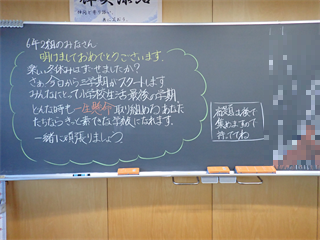 6年2組のみなさん
明けましておめでとうございます。
楽しい冬休みはすごせましたか?
さぁ、今日から三学期がスタートします。
みんなにとって小学校生活最後の学期、
どんな時も一生懸命取り組めるあなた
たちならきっと素てきな学級になれます。
一緒に頑張りましょう
宿題は後で
集めますので
待っててね